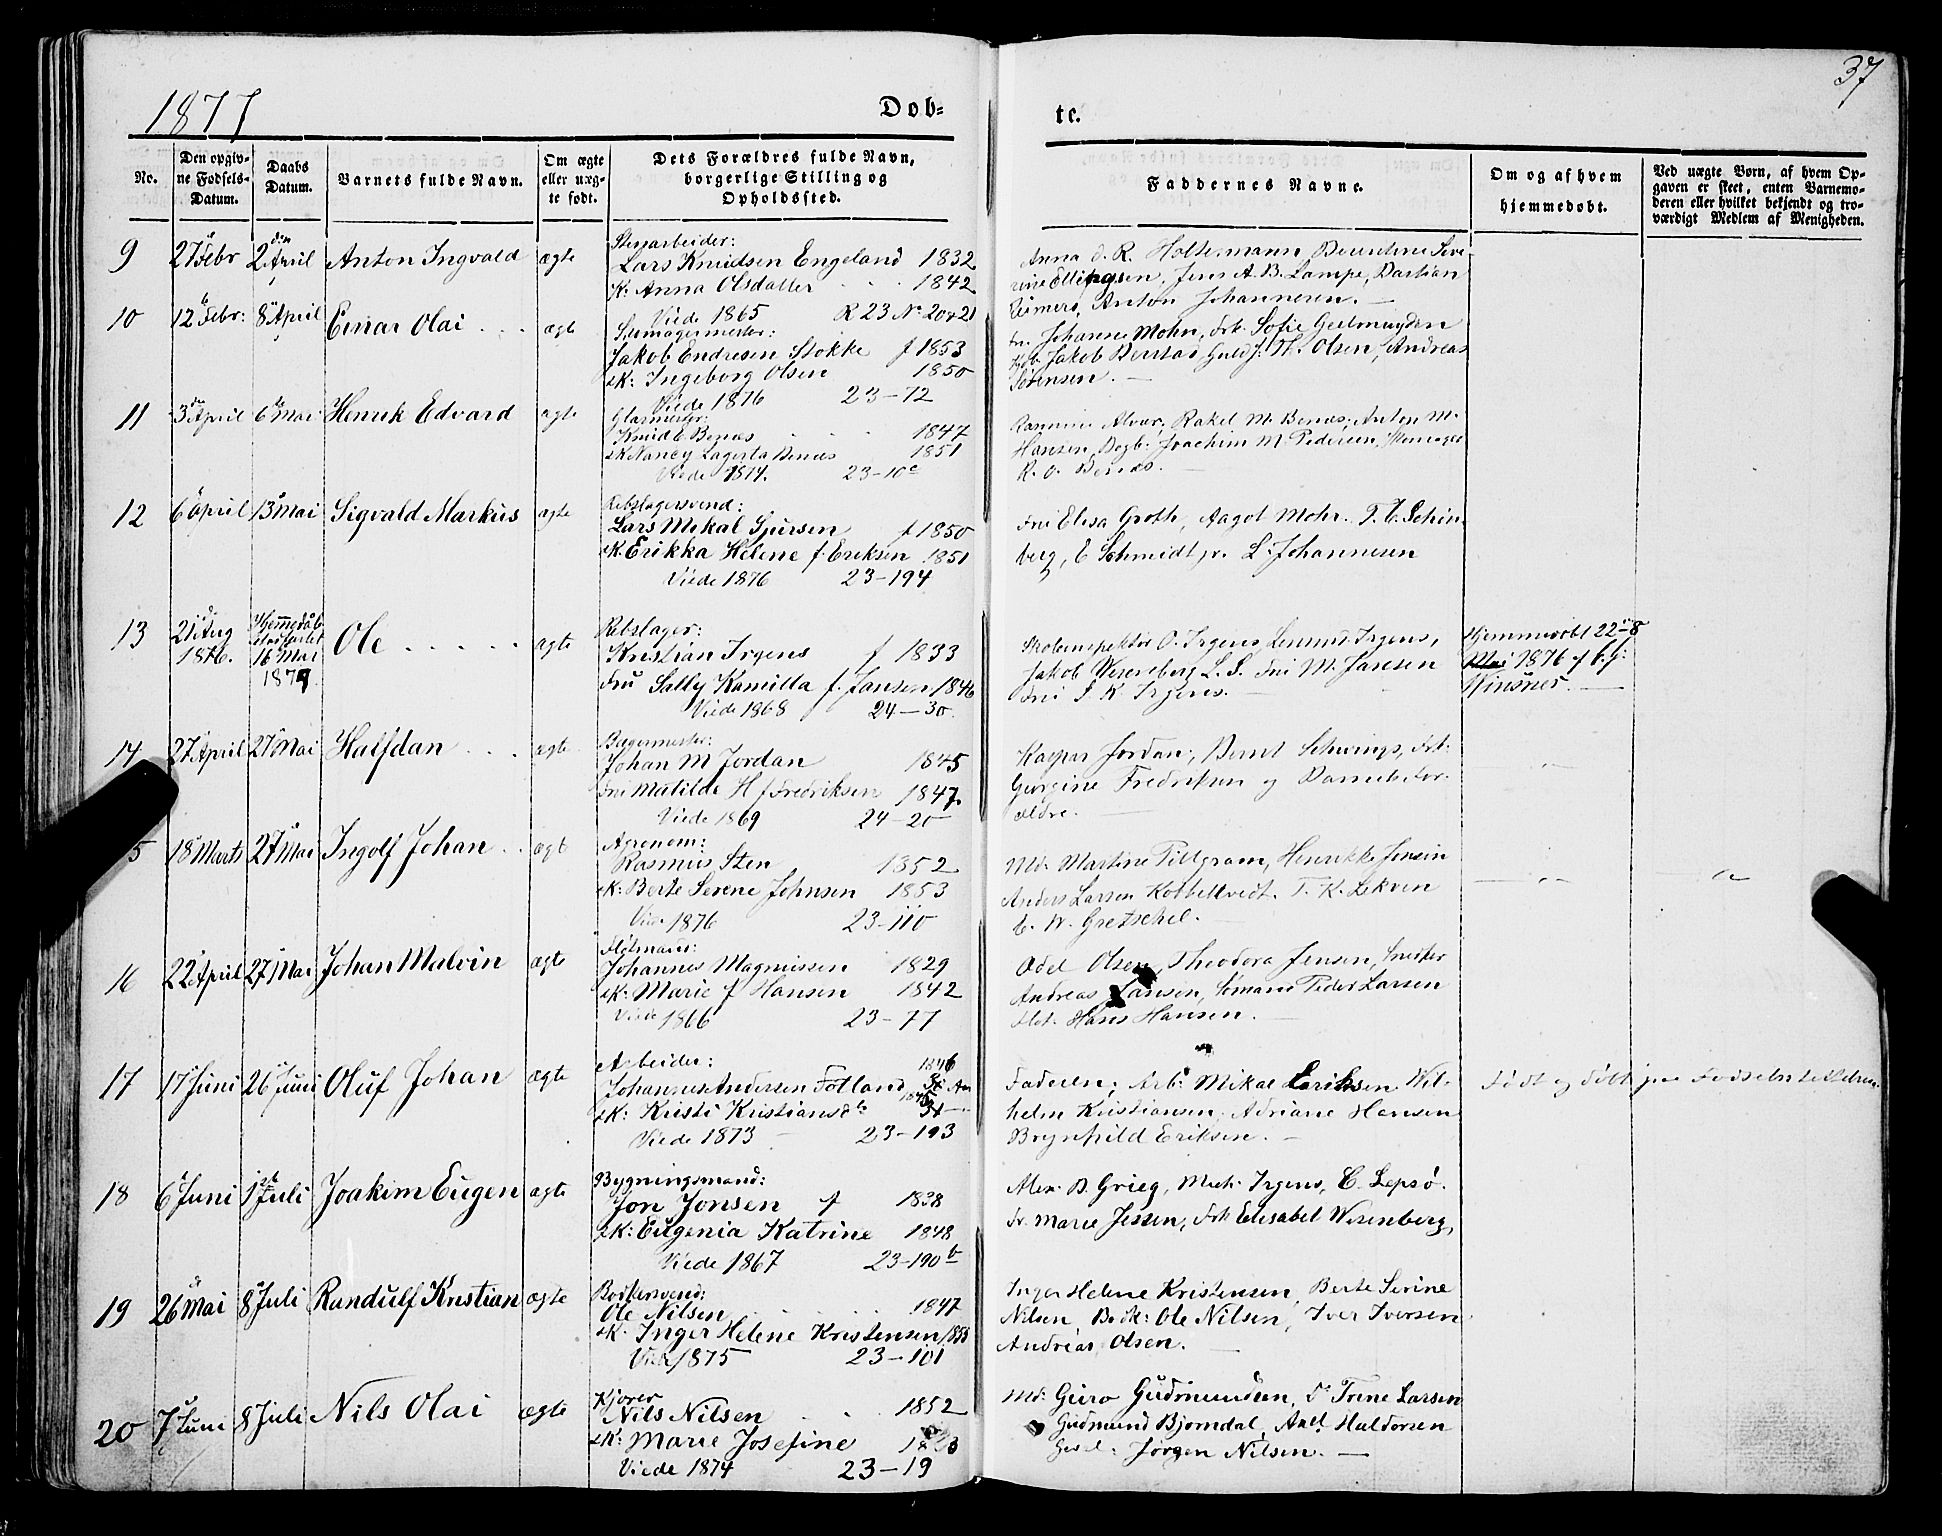 1877
Døb-
te.
37
No.
Den opgiv-
ne Fødsels-
Datum.
Daabs
Datum.
Barnets fulde Navn.
Om ægte
eller uæg-
te født.
Dets Forældres fulde Navn,
borgerlige Stilling og
Opholdssted.
Faddernes Navne.
Om og af hvem
hjemmedøbt.
Ved uægte Børn, af hvem Op-
gaven er skeet, enten Barnemo-
deren eller hvilket bekjendt og tro-
værdigt Medlem af Menigheden.
9 27 Febr 2den April Anton Ingvald ægte
Stenarbeider:
Lars Knudsen Engeland 1832
K: Anna Olsdatter 1842
Viede 1865 R 23 No 20 & 21
Anna d. R. Holtermann
Ellingsen, Jens A. B. Lampe, Bastian
Reimers, Anton Johannesen. —
10 12 Febr: 8 April Einar Olai . . . ægte
Skomagermester:
Jakob Endresen Stokke f 1853
K: Ingeborg Olsen 1850
Viede 1876 23–72
Johanne Mohn, Frk. Sofie Geelmuyden
Jakob Guldsj: Th. Olsen, Andreas
Sørensen. —
11 3 April 6 Mai Henrik Edvard ægte
Glarmester:
Knud E Benæs 1847
K Nancy Lagerta Benæs 1851
Viede 1874. 23–10c
Rakel M. Benæs, Anton M.
Hansen, Bogb: Joachim M. Pedersen,
R. O. Benæs. —
12 6 April 13 Mai Sigvald Markus ægte
Rebslagersvend:
Lars Mikal Sjursen f 1850
K: Erikka Helene f. Eriksen 1851
Viede 1876 23–194
Fru Elisa Groth, Aagot Mohr. T. C. Schin
berg, E Schmidt jr. L. Johannesen
13 21 Aug
1876. Hjemmedåb
stadfæstet
16 Mai
1877. Ole . . . . . ægte
Rebslager:
Kristian Irgens f 1833
Fru Sally Kamilla f. Jansen 1846
Viede 1868 24–30.
Skoleinspektør O. Irgens, Irgens,
Jakob Wesenberg L. S. Fru M. Jansen
Fru J. K. Irgens. —
Hjemmedøbt 22–8
Mai 1876 af
Winsnes. —
14 27 April 27 Mai Halfdan . . . ægte
Bagermester:
Johan M Jordan 1845
Fru Matilde H f Fredriksen 1847.
Viede 1869 24–20
Kaspar Jordan, Bernt Frk:
Georgine Fredriksen og Barnets For-
ældre. —
5 18 Marts 27 Mai Ingolf Johan . . ægt
Agronom:
Rasmus Sten 1852
K: Berte Serene Johnsen 1853
Vied 1876 23–110
Md: Martine Pillgram, Henrikke Jensen
Anders Larsen T. K. Lekven
C. W. Gretschel. —
16 22 April 27 Mai Johan Malvin ægte
Flotmand:
Johannes Magnussen 1829
K: Marie f Hansen 1842
Viede 1866 23–77
Odel Olsen, Theodora Jensen, Snedker
Andreas Jansen, Sømand Peder Larsen
Flot. Hans Hansen. —
17 17 Juni 26 Juni Oluf Johan ægte
Arbeider: 1846
Johannes Andersen Fotland
K: Kristi Kristiansdtr
Viede 1873 — 23–193
Faderen, Arb: Mikal Eriksen Wil-
helm Kristiansen, Adriane Hansen
Brynhild Eriksen. —
Født og døbt paa Fødselsstiftelsen
18 6 Juni 1ste Juli Joakim Eugen ægte
Bygningsmand:
Jon Jonsen f 1838
K: Eugenia Katrine 1848
Viede 1867 23–190b
Alex. B. Grieg, Mich. Irgens, C. Lepsø.
Fr. Marie Jessen, Frk Elisabet Wesenberg,
19 26 Mai 8 Juli Randulf Kristian ægte
Bødkersvend:
Ole Nilsen 1847
K. Inger Helene Kristensen
Vied 1875 23–101
Inger Helene Kristensen, Berte Serine
Nilsen, Bødk: Ole Nilsen, Iver Iversen
Andrias Olsen. —
20 7 Juni 8 Juli Nils Olai ægte
Kjører
Nils Nilsen 1852
K: Marie Josefine
Viede 1874 23–19
Md: Geiro Gudmundsen, Do Trine Larsen
Gudmund Bjorndal, Axel Haldorsen
Jørgen Nilsen. —